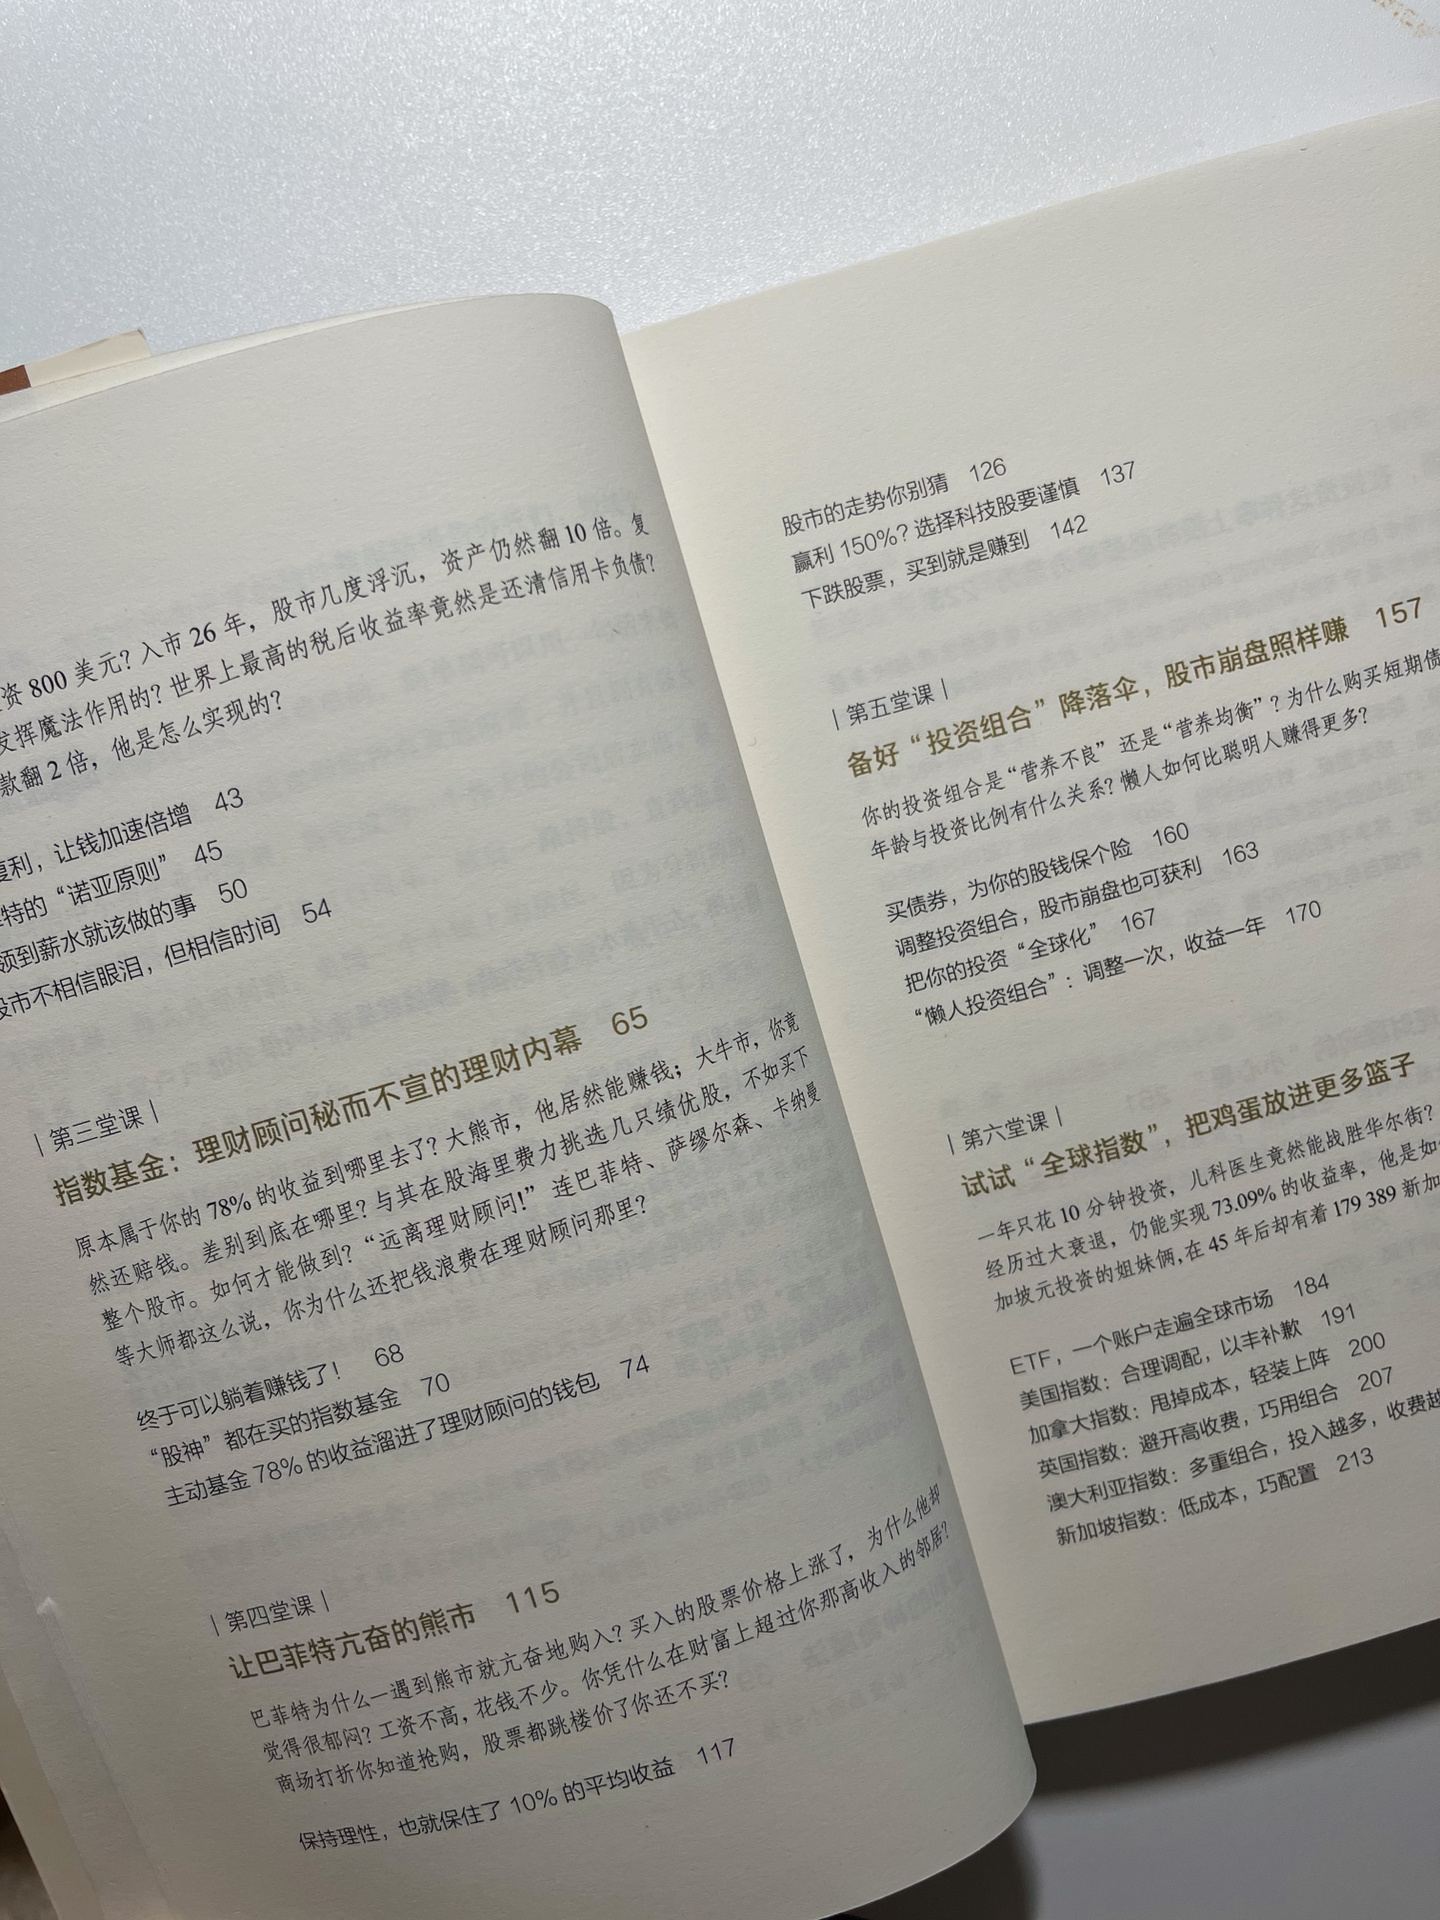 资 800 美元？入市 26 年，股市几度浮沉，资产仍然翻 10 倍。复
发挥魔法作用的？世界上最高的税后收益率竟然是还清信用卡负债？
款翻 2 倍，他是怎么实现的？
复利，让钱加速倍增 43
特的“诺亚原则” 45
领到薪水就该做的事 50
股市不相信眼泪，但相信时间 54
| 第三堂课 |
指数基金：理财顾问秘而不宣的理财内幕 65
原本属于你的 78% 的收益到哪里去了？大熊市，他居然能赚钱；大牛市，你竟
然还赔钱。差别到底在哪里？与其在股海里费力挑选几只绩优股，不如买下
整个股市。如何才能做到？“远离理财顾问！”连巴菲特、萨缪尔森、卡纳曼
等大师都这么说，你为什么还把钱浪费在理财顾问那里？
终于可以躺着赚钱了！ 68
“股神”都在买的指数基金 70
主动基金 78% 的收益溜进了理财顾问的钱包 74
| 第四堂课 |
让巴菲特亢奋的熊市 115
巴菲特为什么一遇到熊市就亢奋地购入？买入的股票价格上涨了，为什么他却
觉得很郁闷？工资不高，花钱不少。你凭什么在财富上超过你那高收入的邻居？
商场打折你知道抢购，股票都跳楼价了你还不买？
保持理性，也就保住了 10% 的平均收益 117
股市的走势你别猜 126
赢利 150%？选择科技股要谨慎 137
下跌股票，买到就是赚到 142
| 第五堂课 |
备好“投资组合”降落伞，股市崩盘照样赚 157
你的投资组合是“营养不良”还是“营养均衡”？为什么购买短期债
年龄与投资比例有什么关系？懒人如何比聪明人赚得更多？
买债券，为你的股钱保个险 160
调整投资组合，股市崩盘也可获利 163
把你的投资“全球化” 167
“懒人投资组合”：调整一次，收益一年 170
| 第六堂课 |
试试“全球指数”，把鸡蛋放进更多篮子
一年只花 10 分钟投资，儿科医生竟然能战胜华尔街？
经历过大衰退，仍能实现 73.09% 的收益率，他是如
加坡元投资的姐妹俩，在 45 年后却有着 179 389 新加
ETF，一个账户走遍全球市场 184
美国指数：合理调配，以丰补歉 191
加拿大指数：甩掉成本，轻装上阵 200
英国指数：避开高收费，巧用组合 207
澳大利亚指数：多重组合，投入越多，收费越
新加坡指数：低成本，巧配置 213